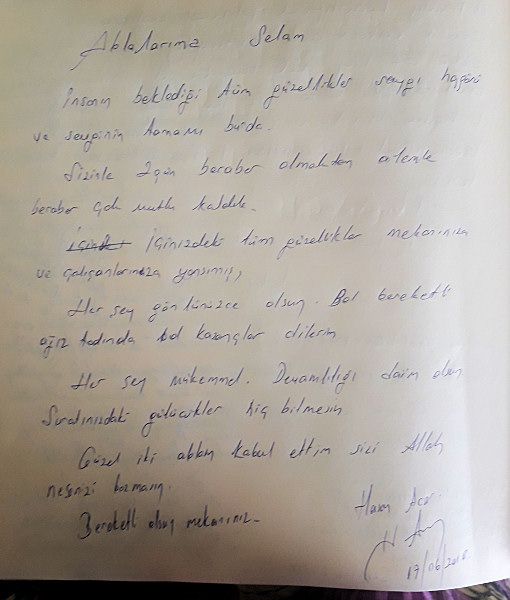 Ablalarıma Selam
İnsanın beklediği tüm güzellikler saygı hoşgörü
ve sevginin tamamı burda.
Sizinle 2 gün beraber olmaktan ailemle
beraber çok mutlu kaldık.
İçinizdeki tüm güzellikler mekanınıza
ve çalışanlarınıza yansımış,
Her şey gönlünüzce olsun. Bol bereketli
ağız tadında bol kazançlar dilerim
Her şey mükemmel. Devamlılığı daim olsun
Suratınızdaki gülücükler hiç bitmesin
Güzel iki ablam kabul ettim sizi Allah
neşenizi bozmasın.
Bereketli olsun mekanınız.